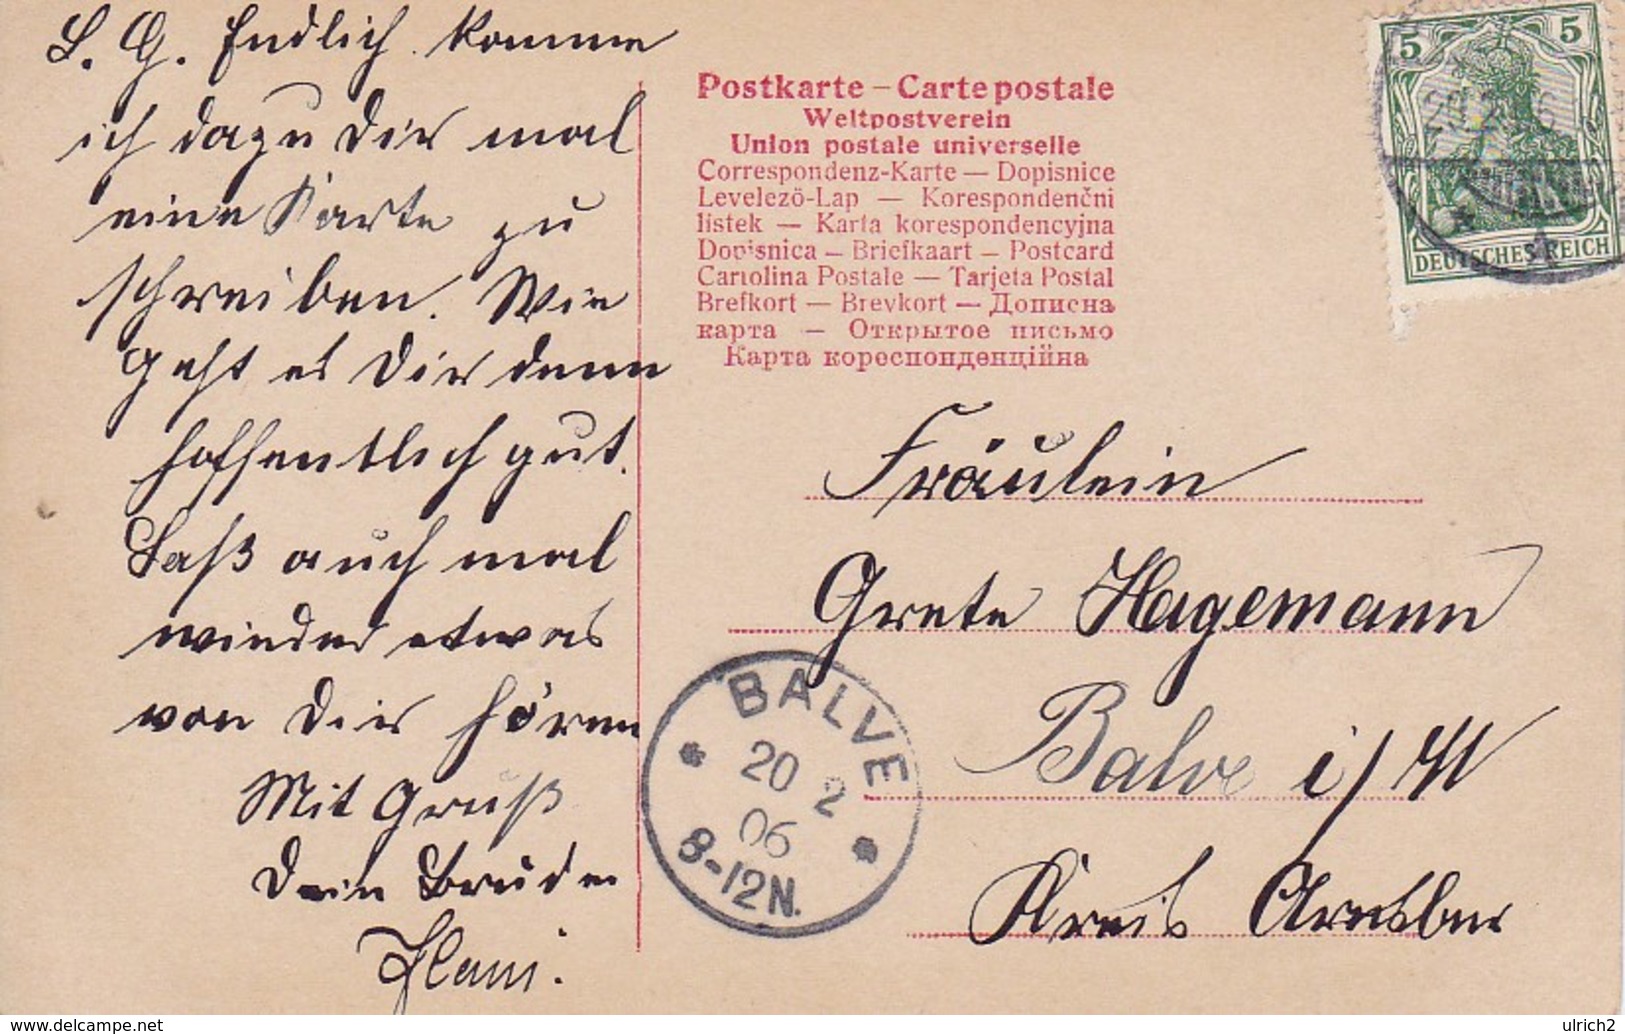 L. G. Endlich komme
ich dazu Dir mal
eine Karte zu
schreiben. Wie
geht es Dir denn
hoffentlich gut.
Laß auch mal
wieder etwas
von Dir hören
Mit Gruß
Dein Bruder
Postkarte – Carte postale
Weltpostverein
Union postale universelle
Correspondenz-Karte — Dopisnice
Levelezö-Lap — Korespondenčni
listek — Karta korespondencyjna
Dopisnica – Briefkaart – Postcard
Cartolina Postale — Tarjeta Postal
Brefkort — Brevkort — Дописна
карта — Открытое письмо
Карта кореспонденційна
5 5
DEUTSCHES REICH
Fräulein
Grete Hagemann
Balve i/W
Kreis
BALVE
20 2
06
8-12N.
www.delcampe.net
ulrich2